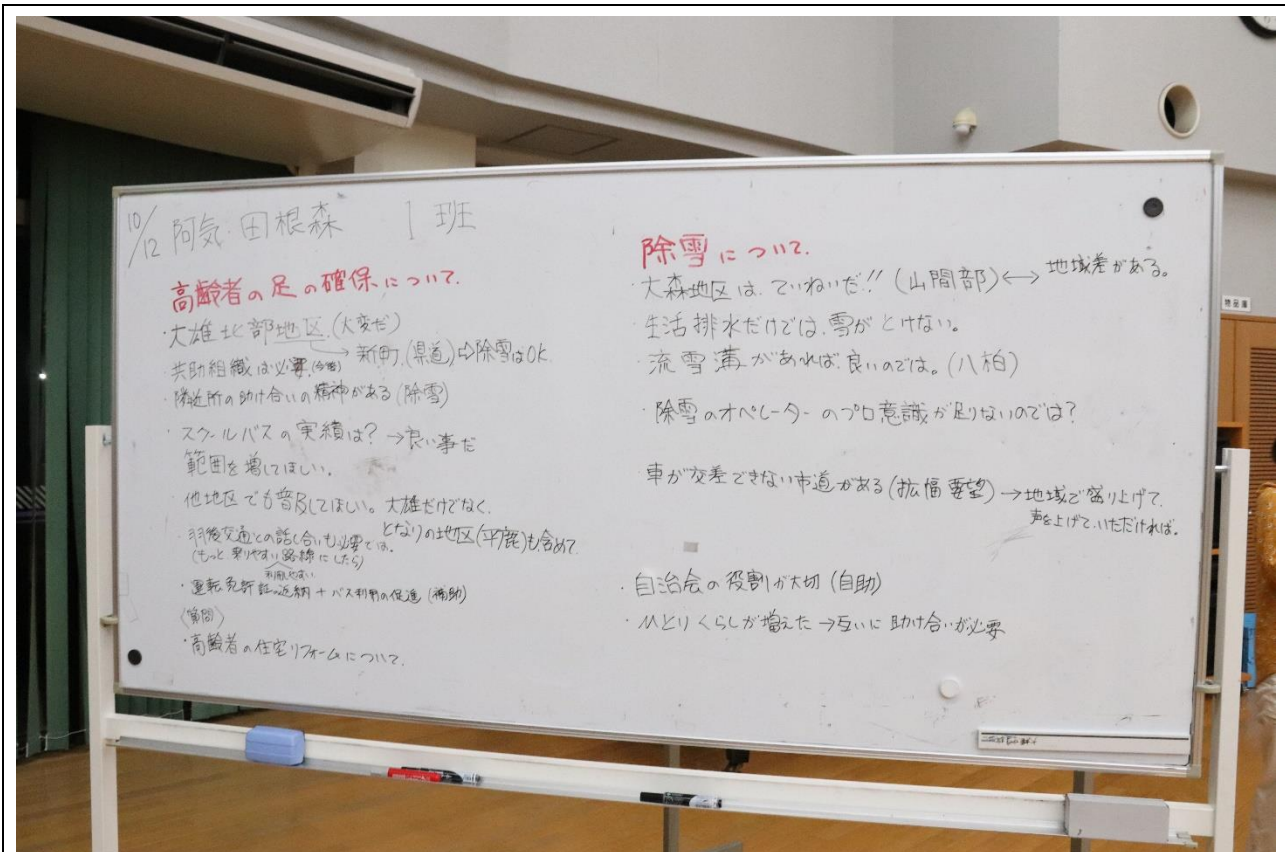 10/12 阿気・田根森 1班
高齢者の足の確保について.
・大雄北部地区.(大変だ)
→ 新町.(県道)⇨除雪はOK.
・共助組織は必要.(今後)
・隣近所の助け合いの精神がある(除雪)
・スクールバスの実績は?→良い事だ
範囲を増してほしい。
・他地区でも普及してほしい。大雄だけでなく、
となりの地区(平鹿)も含めて.
・羽後交通との話し合いも必要では.
(もっと乗りやすい路線にしたら)
利用しやすい
・運転免許証の返納+バス利用の促進(補助)
〈質問〉
・高齢者の住宅リフォームについて.
除雪について.
・大森地区は、ていねいだ!!(山間部)←→ 地域差がある。
・生活排水だけでは、雪がとけない。
・流雪溝があれば、良いのでは。(八柏)
・除雪のオペレーターのプロ意識が足りないのでは?
・車が交差できない市道がある(拡幅要望)→地域で盛り上げて、
声を上げて、いただければ。
・自治会の役割が大切(自助)
・ひとりくらしが増えた→互いに助け合いが必要
物品庫